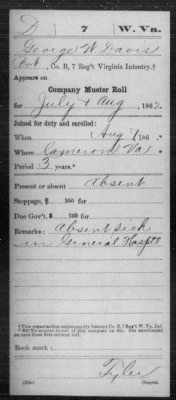 D 7 W. Va.
George W. Davis
Pvt., Co. B, 7 Reg't Virginia Infantry.†
Appears on
Company Muster Roll
for July & Aug, 1862.
Joined for duty and enrolled:
When Aug 7, 186
Where Cameron Va
Period 3 years.*
Present or absent Absent
Stoppage, $ 100 for
Due Gov't, $ 100 for
Remarks: Absent sick
in General Hosptl
†This organization subsequently became Co. B, 7 Reg't W. Va. Inf.
Book mark:
Tyler
Copyist.